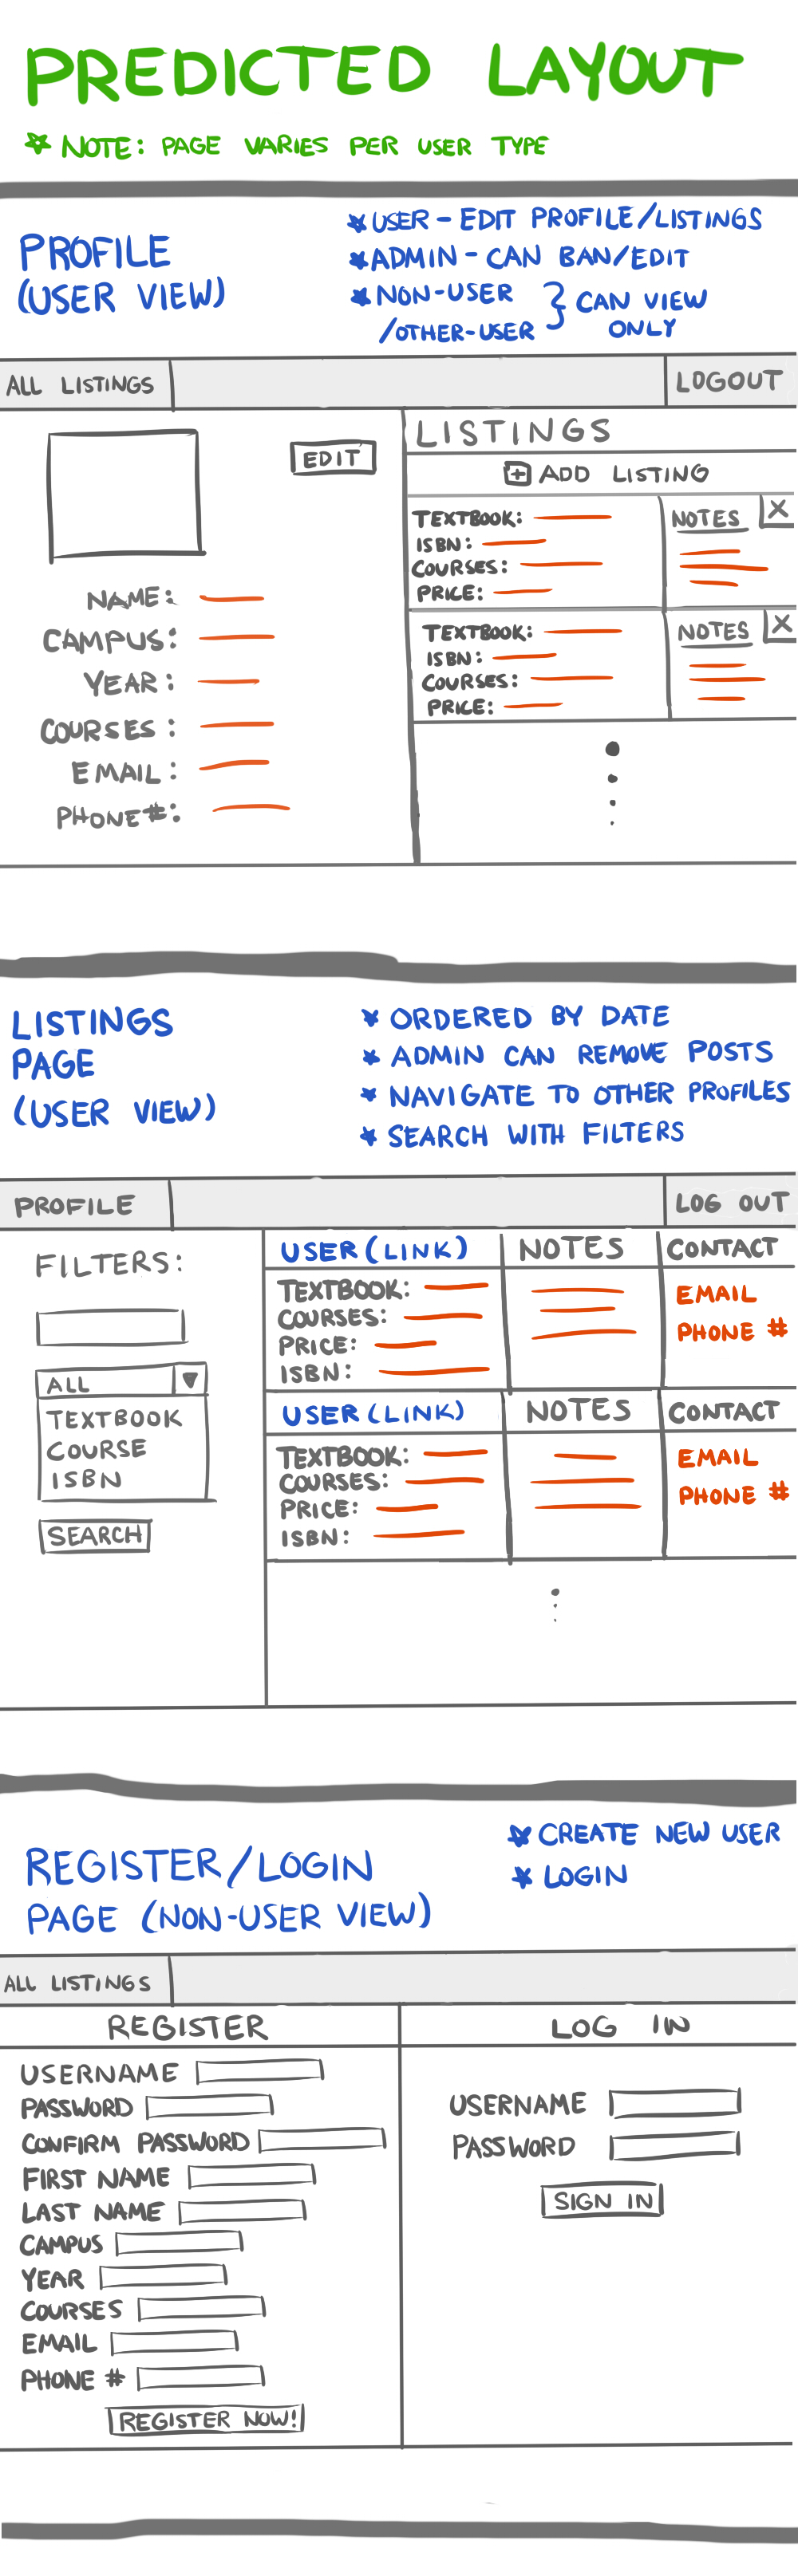 PREDICTED LAYOUT
* NOTE: PAGE VARIES PER USER TYPE
PROFILE
(USER VIEW)
* USER - EDIT PROFILE/LISTINGS
* ADMIN - CAN BAN/EDIT
* NON-USER
/OTHER-USER } CAN VIEW
ONLY
ALL LISTINGS
LOGOUT
EDIT
NAME:
CAMPUS:
YEAR:
COURSES:
EMAIL:
PHONE#:
LISTINGS
+ ADD LISTING
TEXTBOOK:
ISBN:
COURSES:
PRICE:
NOTES
X
TEXTBOOK:
ISBN:
COURSES:
PRICE:
NOTES
X
LISTINGS
PAGE
(USER VIEW)
* ORDERED BY DATE
* ADMIN CAN REMOVE POSTS
* NAVIGATE TO OTHER PROFILES
* SEARCH WITH FILTERS
PROFILE
LOG OUT
FILTERS:
ALL
TEXTBOOK
COURSE
ISBN
SEARCH
USER (LINK)
NOTES
CONTACT
TEXTBOOK:
COURSES:
PRICE:
ISBN:
EMAIL
PHONE #
USER (LINK)
NOTES
CONTACT
TEXTBOOK:
COURSES:
PRICE:
ISBN:
EMAIL
PHONE #
REGISTER/LOGIN
PAGE (NON-USER VIEW)
* CREATE NEW USER
* LOGIN
ALL LISTINGS
REGISTER
USERNAME
PASSWORD
CONFIRM PASSWORD
FIRST NAME
LAST NAME
CAMPUS
YEAR
COURSES
EMAIL
PHONE #
REGISTER NOW!
LOG IN
USERNAME
PASSWORD
SIGN IN